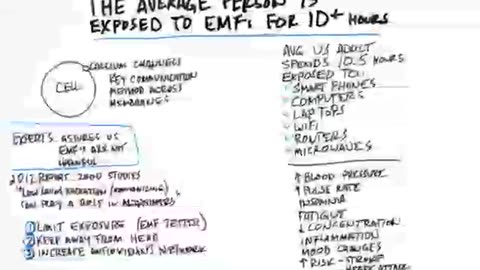 THE AVERAGE PERSON IS
EXPOSED TO EMFs FOR 10+ HOURS
CELL
CALCIUM CHANNELS
KEY COMMUNICATION
METHOD ACROSS
MEMBRANES
EXPERTS ASSURES US
EMF's ARE NOT
HARMFUL
2012 REPORT 2000 STUDIES
"LOW LEVEL RADIATION (NONIONIZING)
CAN PLAY A ROLE IN ALZHEIMERS"
① LIMIT EXPOSURE (EMF TESTER)
② KEEP AWAY FROM HEAD
③ INCREASE ANTIOXIDANT NETWORK
AVG US ADULT
SPENDS 10.5 HOURS
EXPOSED TO:
SMART PHONES
COMPUTERS
LAPTOPS
WIFI
ROUTERS
MICROWAVES
↑ BLOOD PRESSURE
↑ PULSE RATE
INSOMNIA
FATIGUE
↓ CONCENTRATION
INFLAMMATION
MOOD CHANGES
↑ RISK - STROKE
HEART ATTACK